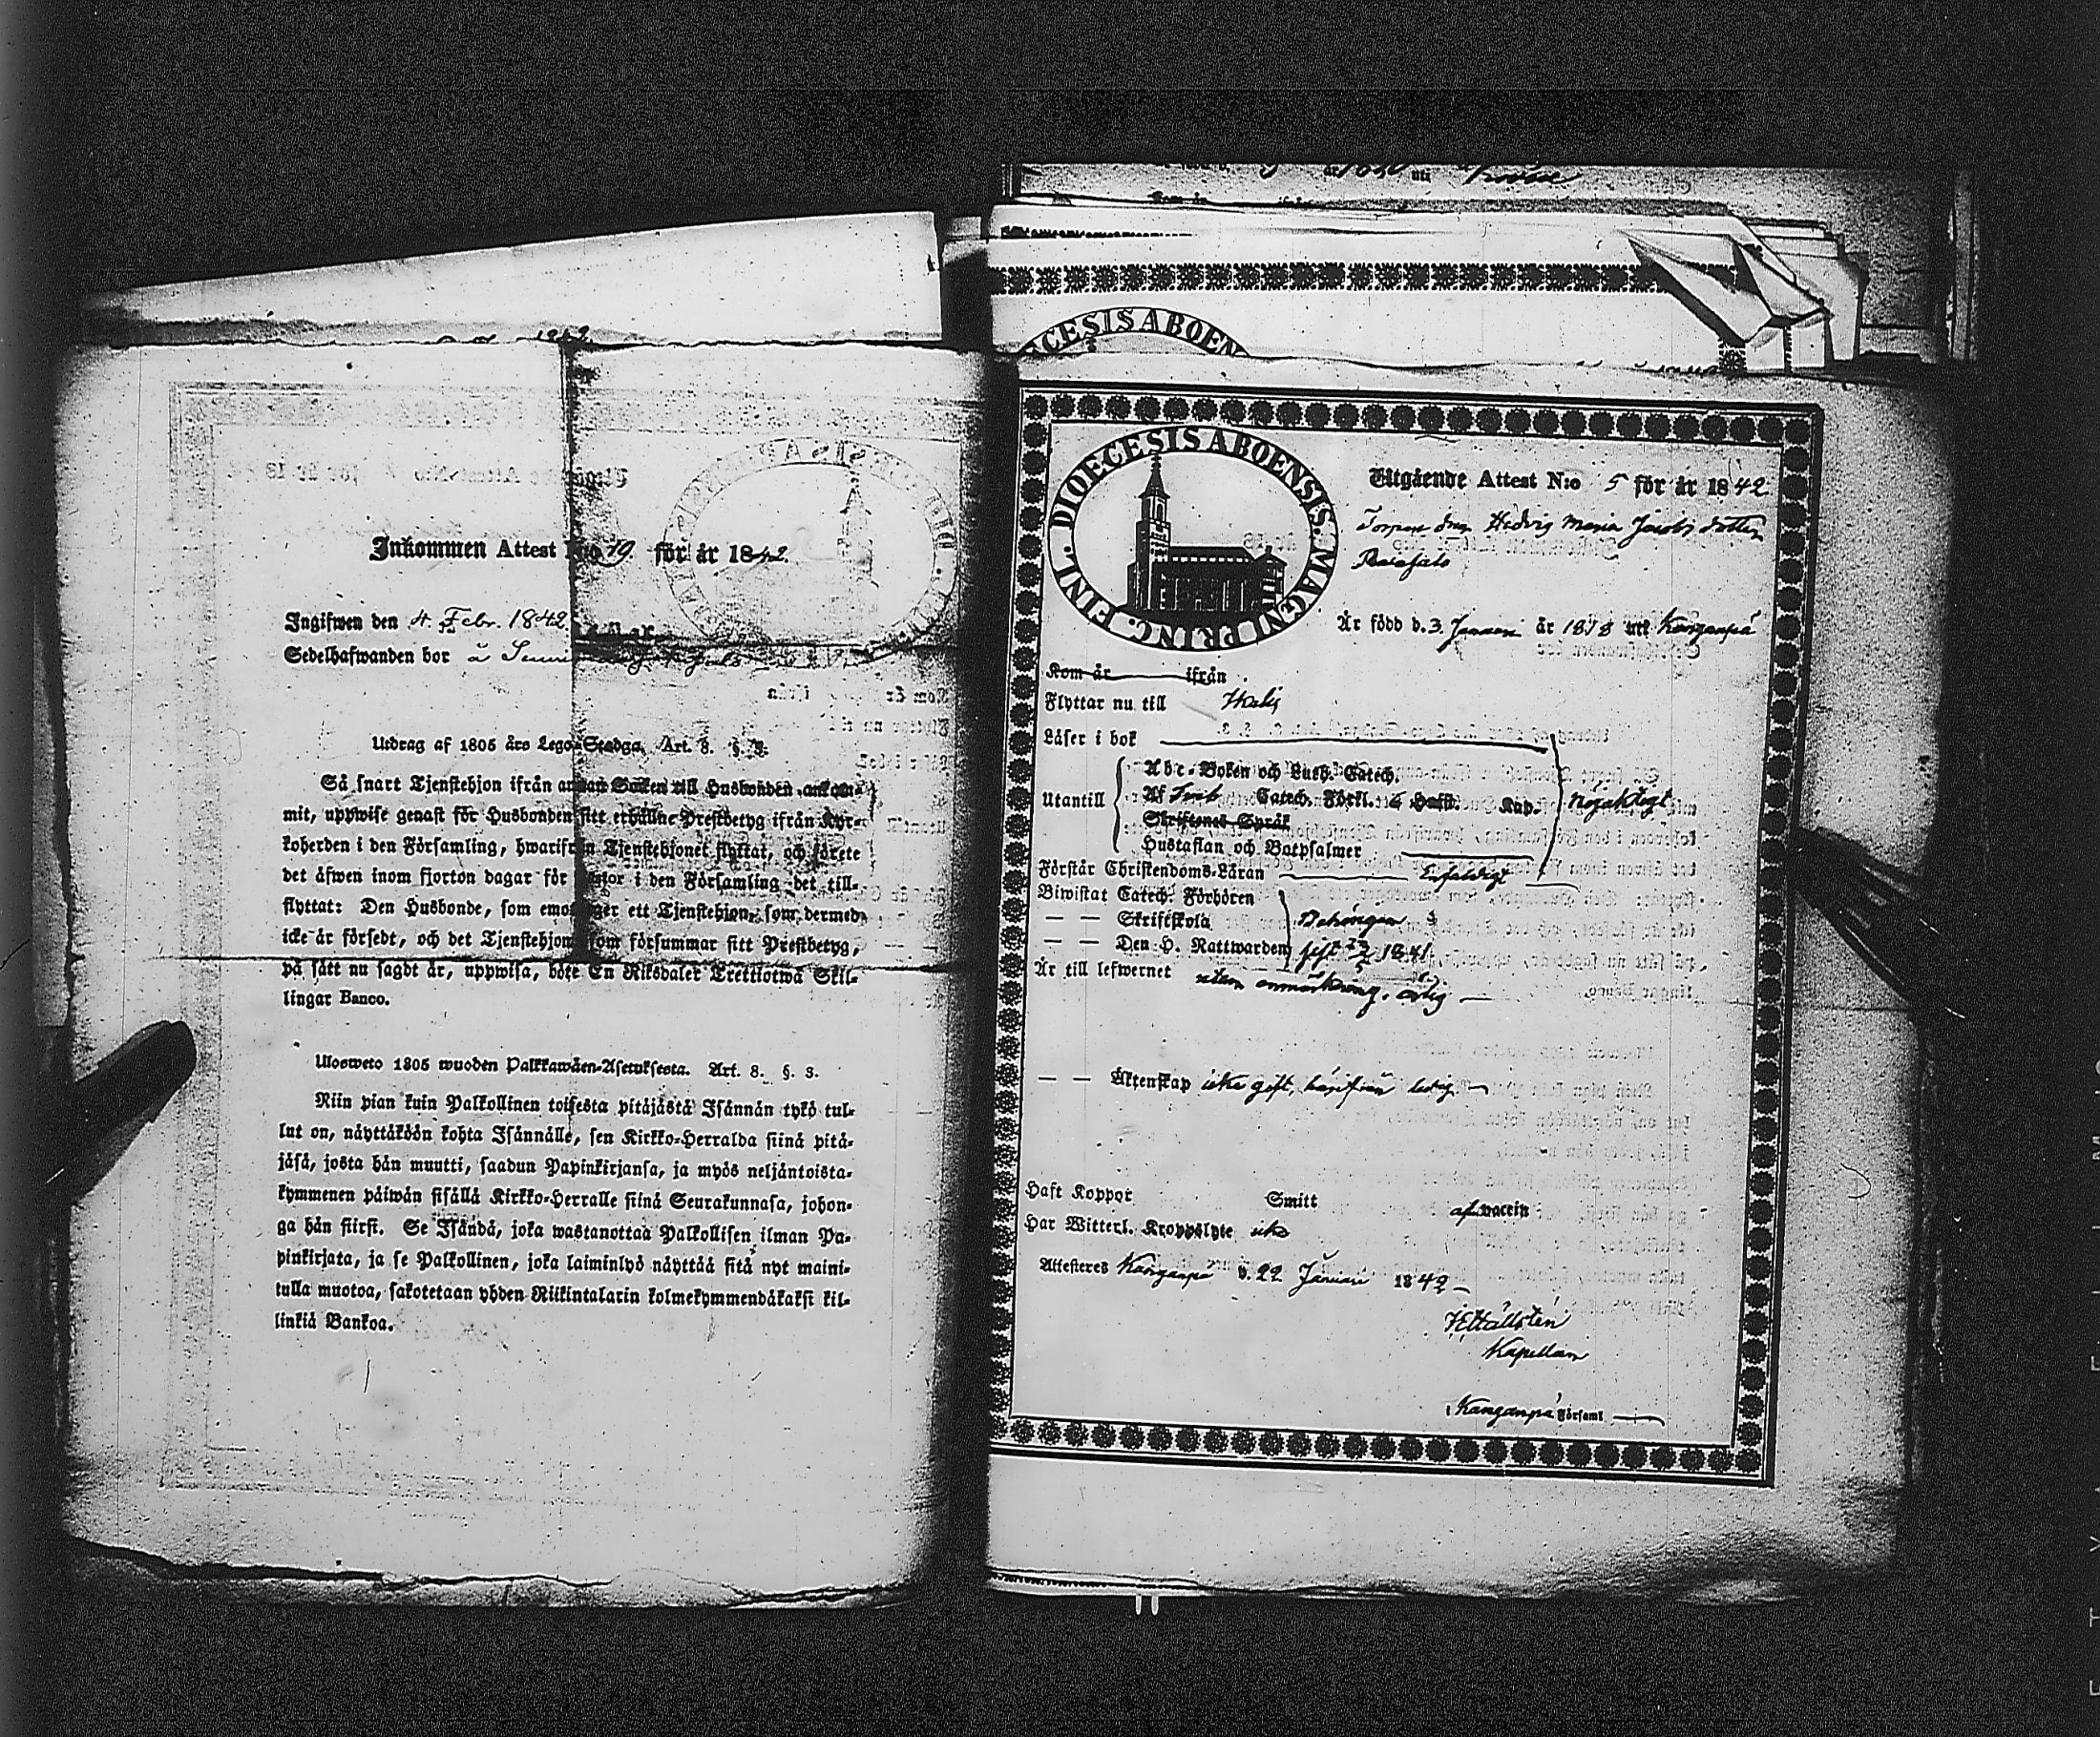 1842
Inkommen Attest N:o 19 för år 1842.
Ingifwen den 4 Febr. 1842
Sedelhafwanden bor å
Utdrag af 1805 års Lego-Stadga, Art. 8. §. 3.
Så snart Tjenstehjon ifrån annan Socken till Husbonden ankom-
mit, uppwise genast för Husbonden sitt erhållne Prestbetyg ifrån Kyr-
koherden i den Församling, hwarifrån Tjenstehjonet flyttat, och förete
det äfwen inom fjorton dagar för Pastor i den Församling det till-
flyttat: Den Husbonde, som emottager ett Tjenstehjon, som dermed
icke är försedt, och det Tjenstehjon som försummar sitt Prestbetyg,
på sätt nu sagdt är, uppwisa, böte En Riksdaler Trettiotwå Skil-
lingar Banco.
Ulosweto 1805 wuoden Palkkawäen-Asetuksesta. Art. 8. §. 3.
Niin pian kuin Palkollinen toisesta pitäjästä Isännän tykö tul-
lut on, näyttäköön kohta Isännälle, sen Kirkko-Herralda siinä pitä-
jäsä, josta hän muutti, saadun Papinkirjansa, ja myös neljäntoista-
kymmenen päiwän sisällä Kirkko-Herralle siinä Seurakunnasa, johon-
ga hän siirsi. Se Isändä, joka wastanottaa Palkollisen ilman Pa-
pinkirjata, ja se Palkollinen, joka laiminlyö näyttää sitä nyt maini-
tulla muotoa, sakotetaan yhden Riikintalarin kolmekymmendäkaksi kil-
linkiä Bankoa.
uti
Kom år ifrån
DIOECESIS ABOEN
FINL. DIOECESIS ABOENSIS. MAGNI PRINC.
Utgående Attest N:o 5 för år 1842
Hedvig Maria Jacobs dotter
Är född d. 3 Januari år 1818 uti Kanganpä
Kom år ifrån
Flyttar nu till
Läser i bok
Utantill
Abc-Boken och Luth. Catech.
Af Catech. Förkl. Kap. nöjaktigt
Skriftenes Språk
Hustaflan och Botpsalmer
Förstår Christendoms-Läran Enfaldigt
Biwistat Catech. Förhören
— — Skriftskola Behörigen
— — Den H. Nattwarden sist 1841
Är till lefwernet utan anmärkning, ärlig —
— — Äktenskap icke gift, härifrån ledig —
Haft Koppor Smitt af vaccin
Har Witterl. Kroppslyte icke
Attesteres Kanganpä d. 22 Januari 1842
Kapellan
i Kanganpä Församl